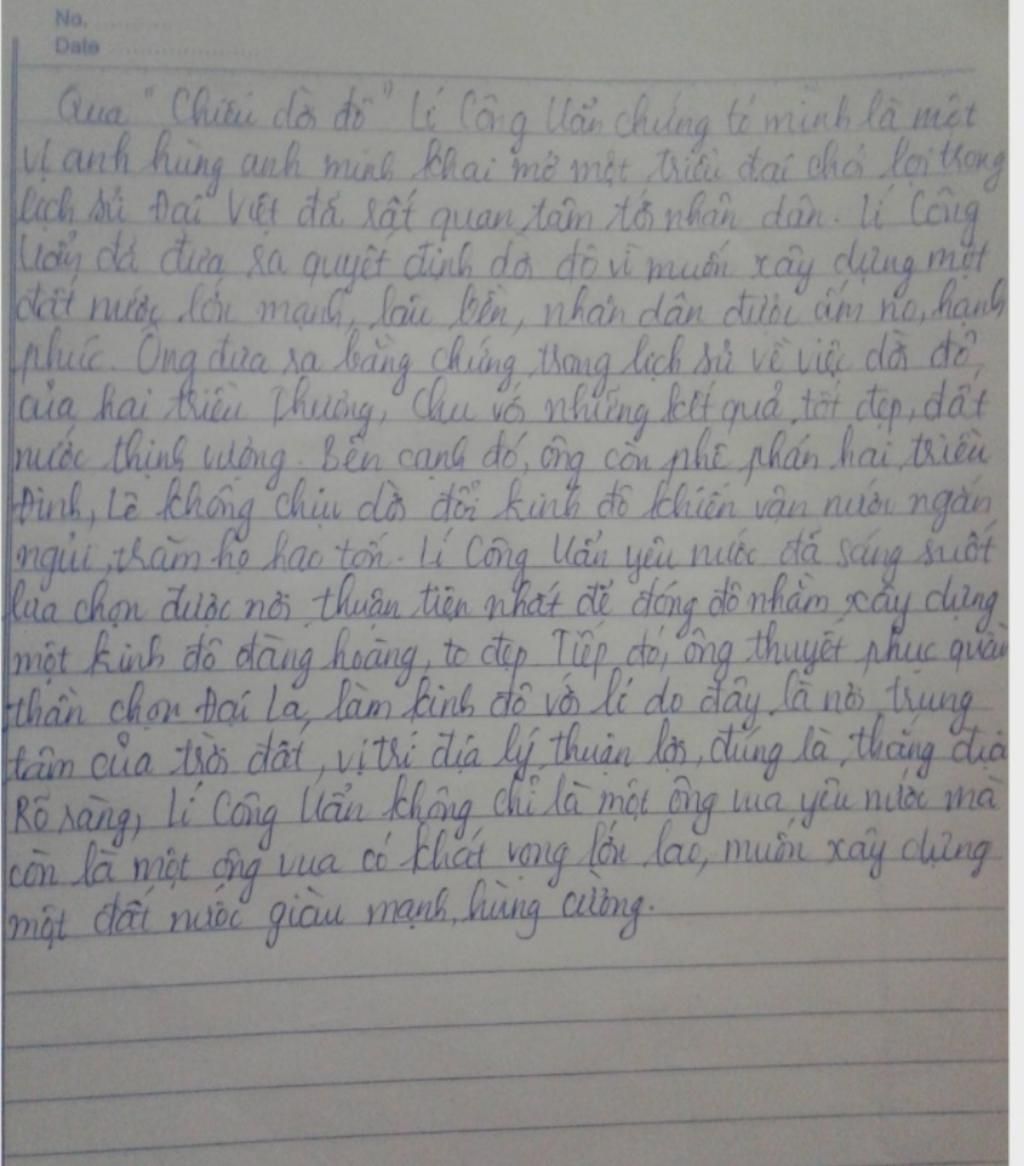 No.
Date
Qua "Chiếu dời đô" Lí Công Uẩn chứng tỏ mình là một
vị anh hùng anh minh khai mở một triều đại chói lọi trong
lịch sử Đại Việt đã rất quan tâm tới nhân dân. Lí Công
Uẩn đã đưa ra quyết định dời đô vì muốn xây dựng một
đất nước lớn mạnh, lâu bền, nhân dân được ấm no, hạnh
phúc. Ông đưa ra bằng chứng trong lịch sử về việc dời đô
của hai triều Thương, Chu với những kết quả tốt đẹp, đất
nước thịnh vượng. Bên cạnh đó, ông còn phê phán hai triều
Đinh, Lê không chịu dời đổi kinh đô khiến vận nước ngắn
ngủi, trăm họ hao tổn. Lí Công Uẩn yêu nước đã sáng suốt
lựa chọn được nơi thuận tiện nhất để đóng đô nhằm xây dựng
một kinh đô đàng hoàng, to đẹp Tiếp đó, ông thuyết phục quần
thần chọn Đại La làm kinh đô với lí do đây là nơi trung
tâm của trời đất, vị trí địa lý thuận lợi, đúng là thắng địa
Rõ ràng, Lí Công Uẩn không chỉ là một ông vua yêu nước mà
còn là một ông vua có khát vọng lớn lao, muốn xây dựng
một đất nước giàu mạnh, hùng cường.